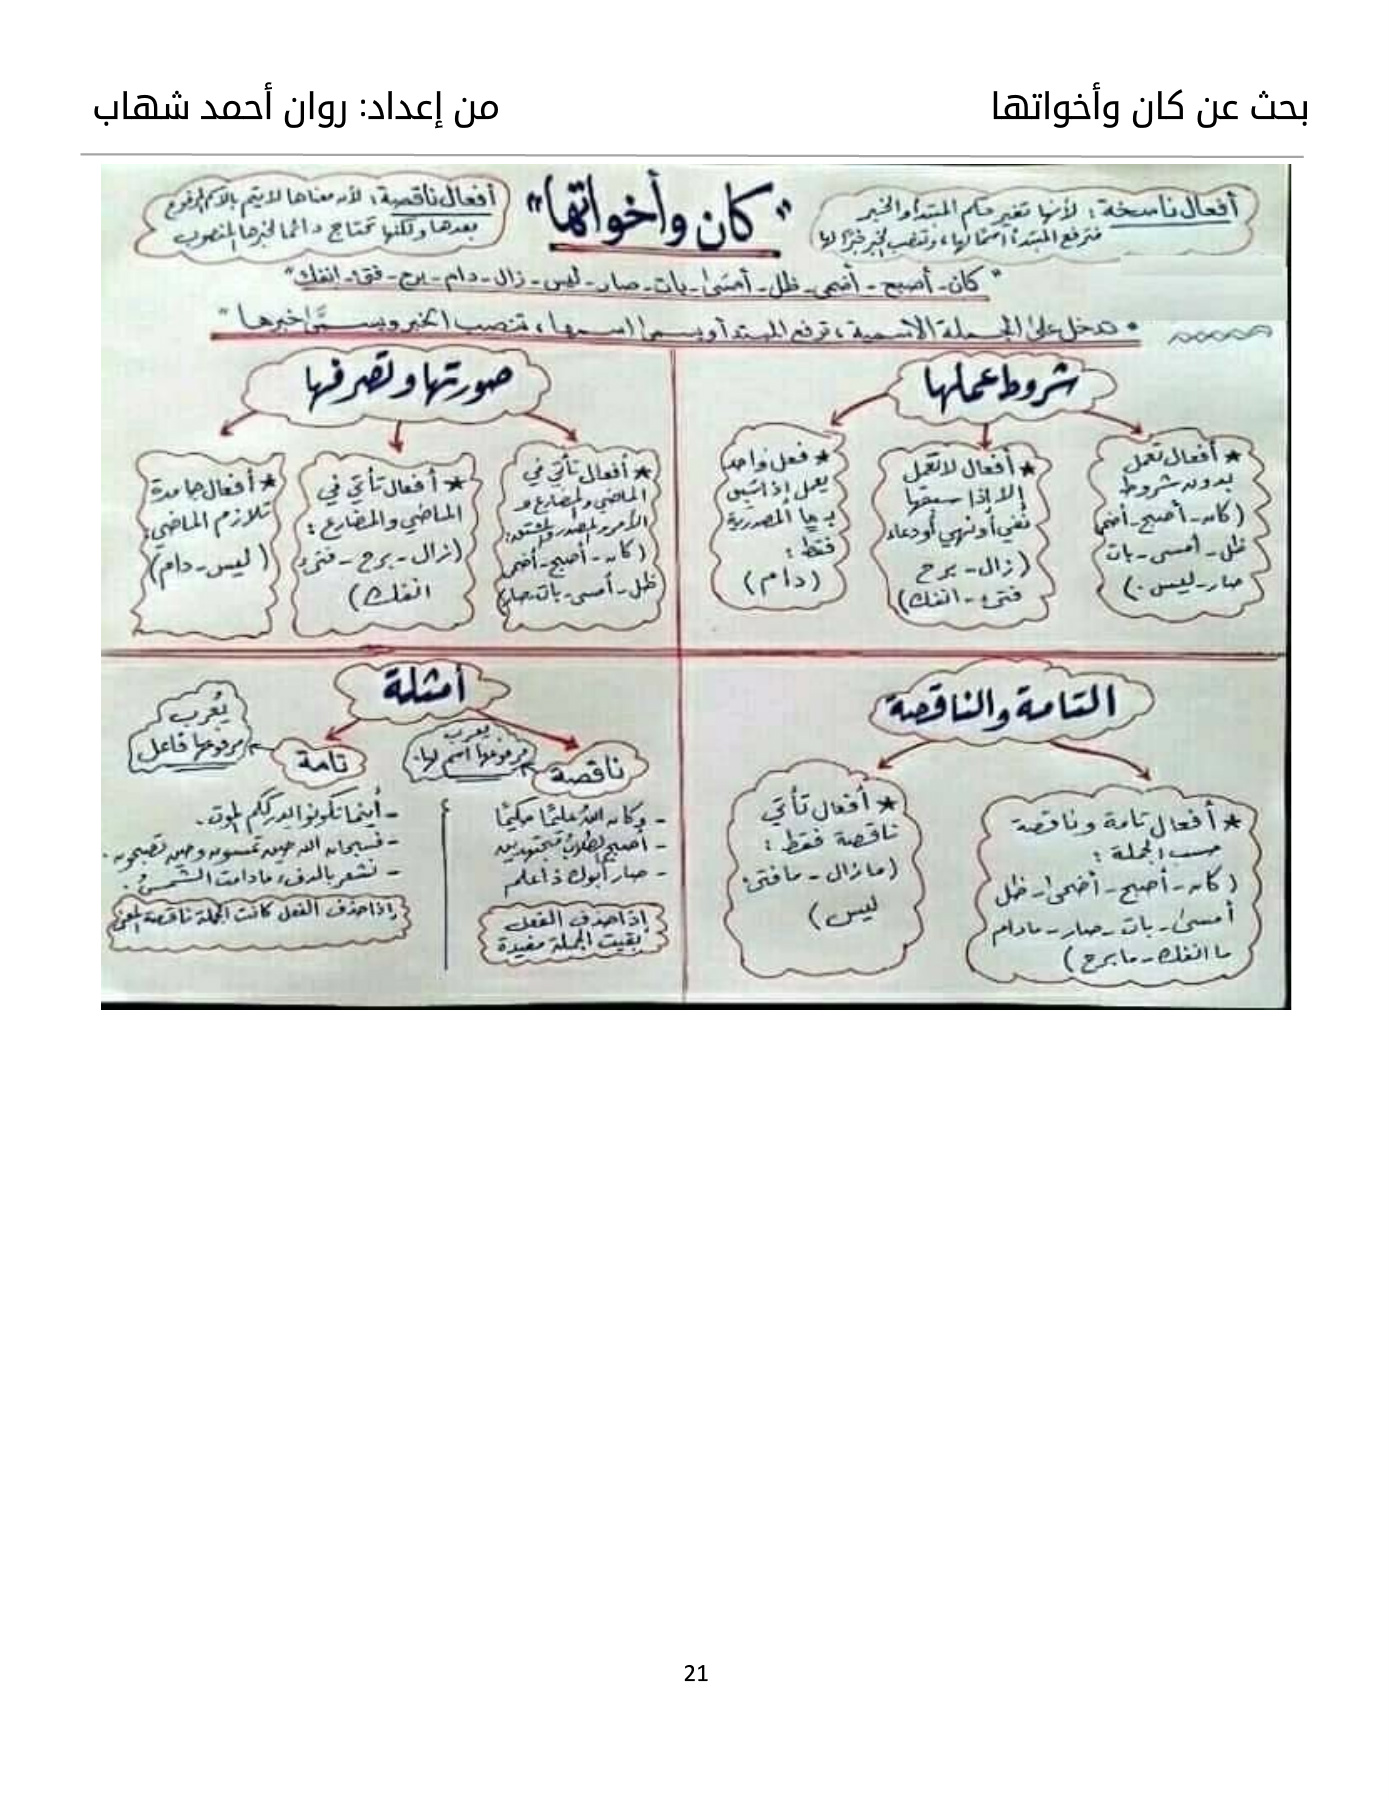 بحث عن كان وأخواتها
من إعداد: روان أحمد شهاب
"كان وأخواتها"
أفعال ناسخة: لأنها تغير حكم المبتدأ والخبر
فترفع المبتدأ اسمًا لها، وتنصب الخبر خبرًا لها
أفعال ناقصة: لأن معناها لا يتم بالاسم المرفوع
بعدها ولكنها تحتاج دائما لخبرها المنصوب
"كان - أصبح - أضحى - ظل - أمسى - بات - صار - ليس - زال - دام - برح - فتئ - انفك"
تدخل على الجملة الاسمية، ترفع المبتدأ ويسمى اسمها، تنصب الخبر ويسمى خبرها"
شروط عملها
★ أفعال تعمل
بدون شروط
(كان - أصبح - أضحى
ظل - أمسى - بات
صار - ليس.)
★ أفعال لا تعمل
إلا إذا سبقها
نفي أو نهي أو دعاء
(زال - برح
فتئ - انفك)
★ فعل واحد
يعمل إذا سبق
بـ ما المصدرية
فقط:
(دام)
صورتها وتصرفها
★ أفعال تأتي في
الماضي والمضارع و
الأمر والمصدر والمشتق:
(كان - أصبح - أضحى
ظل - أمسى - بات - صار)
★ أفعال تأتي في
الماضي والمضارع:
(زال - برح - فتئ
انفك)
★ أفعال جامدة
تلازم الماضي:
(ليس - دام)
التامة والناقصة
★ أفعال تامة وناقصة
حسب الجملة:
(كان - أصبح - أضحى - ظل
أمسى - بات - صار - مادام
ما انفك - ما برح)
★ أفعال تأتي
ناقصة فقط:
(مازال - ما فتئ
ليس)
أمثلة
ناقصة
يعرب
مرفوعها اسم لها.
- وكان الله عليمًا حكيمًا
- أصبح الطلاب مجتهدين
- صار أبوك ذا علم
إذا حذف الفعل
بقيت الجملة مفيدة
تامة
يُعرب
مرفوعها فاعل
- أينما تكونوا يدرككم الموت.
- فسبحان الله حين تمسون وحين تصبحون.
- نشعر بالدفء مادامت الشمس.
إذا حذف الفعل كانت الجملة ناقصة المعنى
21